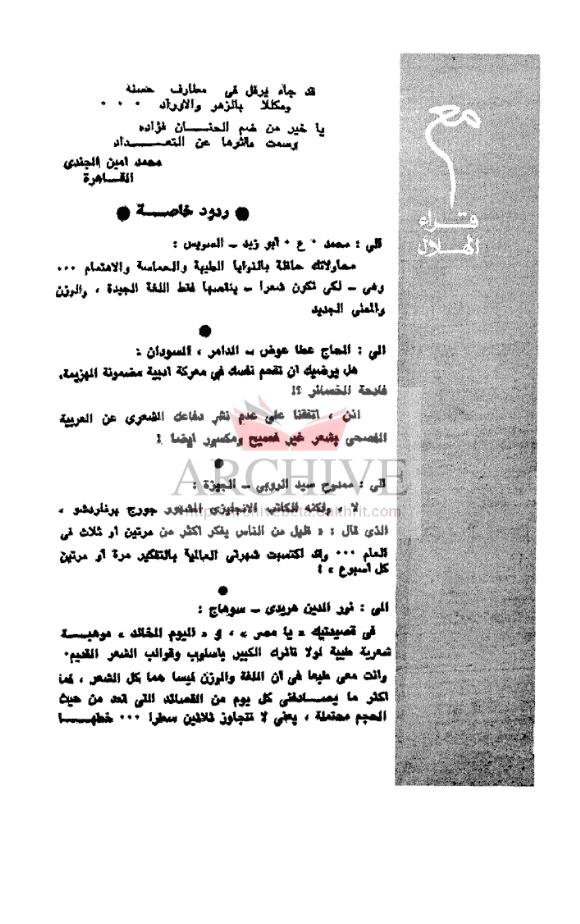 مع
قراء
الهلال
قد جاء يرفل في مطارف حسنه
ومكللا بالزهر والأوراد ...
يا خير من ضم الحنان فؤاده
وسمت مآثرها عن التعداد
محمد أمين الجندى
القاهرة
● ردود خاصة ●
الى : محمد . ع . أبو زيد - السويس :
محاولاتك حافلة بالنوايا الطيبة والحماسة والاهتمام ...
وهى - لكى تكون شعرا - ينقصها فقط اللغة الجيدة ، والوزن
والمعنى الجديد
●
الى : الحاج عطا عوض - الدامر ، السودان :
هل يرضيك أن تقحم نفسك فى معركة أدبية مضمونة الهزيمة،
فادحة الخسائر ؟!
اذن ، اتفقنا على عدم نشر دفاعك الشعرى عن العربية
الفصحى بشعر غير فصيح ومكسور أيضا !
●
الى : ممدوح سيد الروبى - الجيزة :
لا .. ولكنه الكاتب الانجليزى المشهور جورج برناردشو ،
الذى قال : « قليل من الناس يفكر أكثر من مرتين أو ثلاث فى
العام ... وقد اكتسبت شهرتى العالمية بالتفكير مرة أو مرتين
كل أسبوع » !
●
الى : نور الدين هريدى - سوهاج :
فى قصيدتيك « يا مصر » ، و « اليوم الخالد » موهبة
شعرية طيبة لولا تأثرك الكبير بأسلوب وقوالب الشعر القديم.
وأنت معى طبعا فى أن اللغة والوزن ليسا هما كل الشعر ، فما
أكثر ما يصادفنى كل يوم من القصائد التى تعد من حيث
الحجم محتملة ، يعنى لا تتجاوز ثلاثين سطرا ... خطها
ARCHIVE